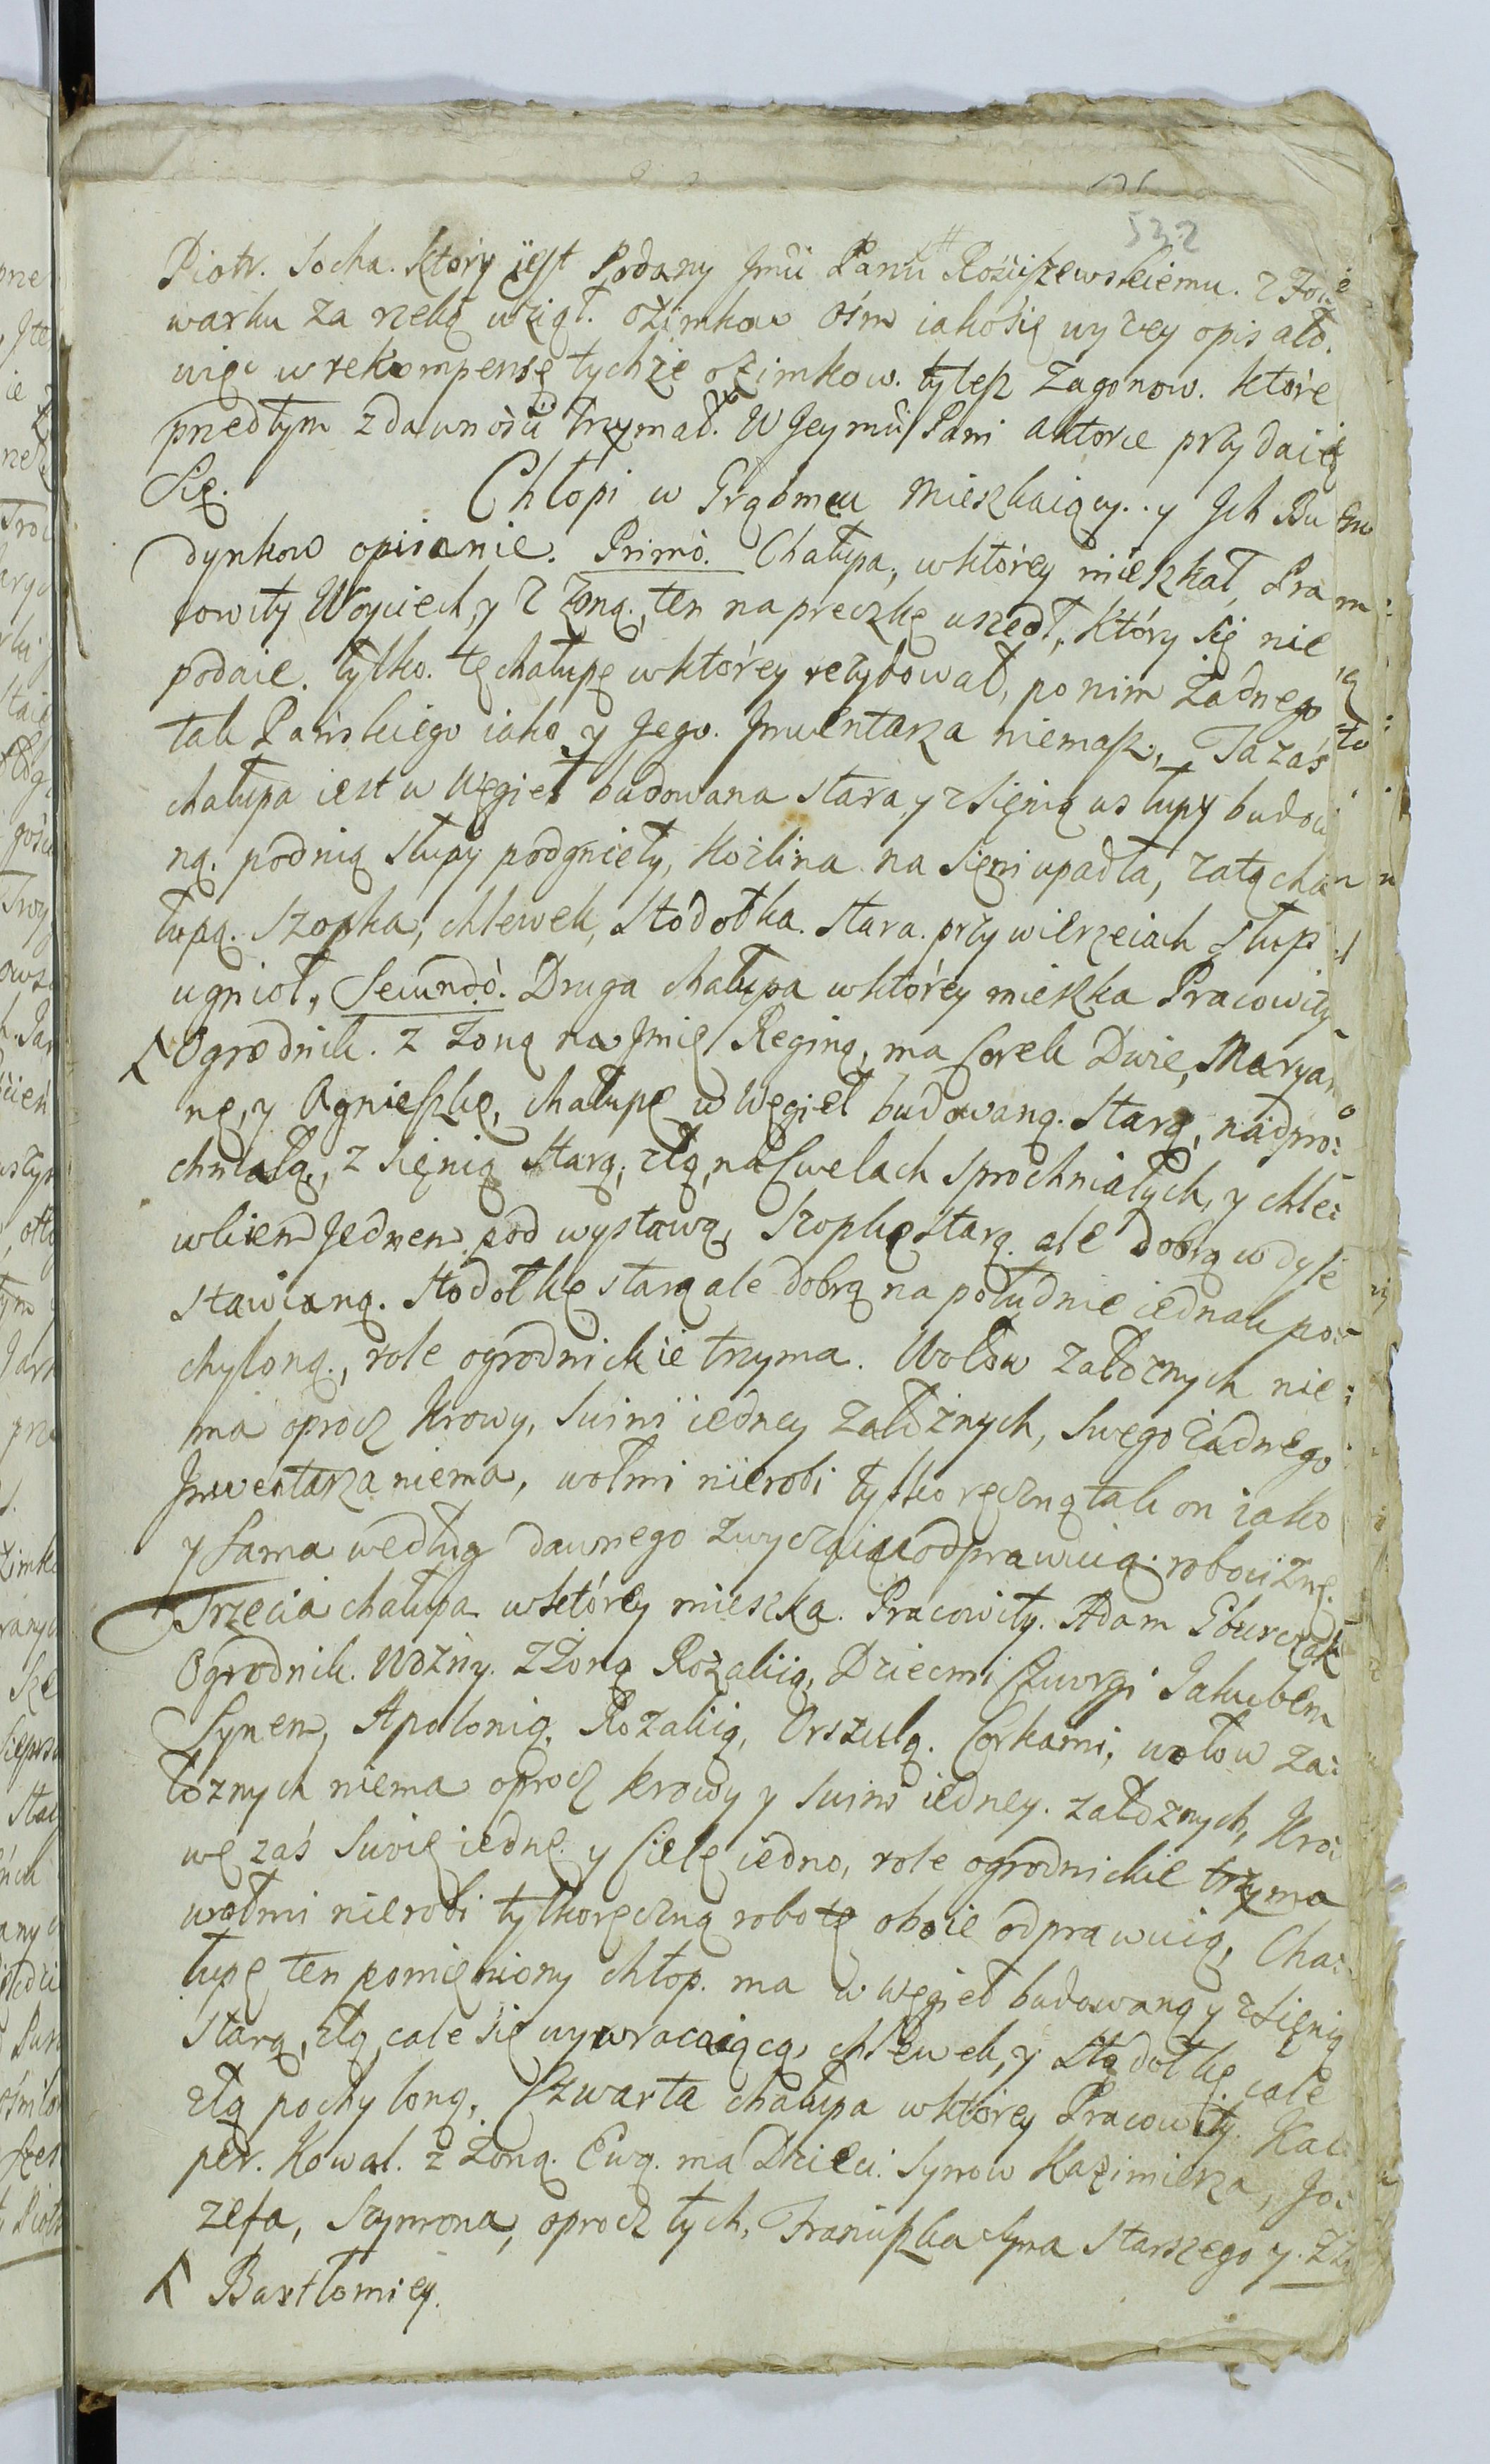 522
Piotr. Socha. który iest Podany Jmći Panu Rościszewskiemu. z Fol:
warku za rzeką wziął. ozimkow ośm iako się wyzey opisało.
więc w rekompensę tychże ozimkow. tylesz Zagonow. które
przedtym zdawności trzymał. W Jeymći Pani aktorce przydaię
Się. Chłopi w Grąbmcu Mieszkaiący. y Jch Bu
dynkow opisanie. Primò. Chałupa, w którey mieszkał, Pra
cowity Woyciech, y z Zoną, ten na preczkę uszedł, który się nie
podaie. tylko. tę chałupę w którey rezydował, po nim żadnego
tak Pańskiego iako y Jego. Jnwentarza niemasz. Ta zaś
chałupa iest w Węgieł budowana stara, y z Sięnią w słupy budow
ną. pod nią słupy podgnieły, Kozlina na Sięni upadła, za tą cha
łupą. Szopka, chlewek, Stodołka. stara. przy wierzeiach słup
ugnioł, Secundò. Druga chałupa w którey mieszka Pracowity
Ogrodnik. z Zoną na Jmię Reginą, ma Corek Dwie, Maryan
nę, y Agnieszkę, chałupę w Węgieł budowaną. Starą, nadpro:
chniałą, z Sięnią Starą, złą, na Cwelach sprochniałych, y chle:
wkiem Jednem pod wystawą, Szopkę starą. ale dobrą w dyle
stawianą. Stodołkę starą ale dobrą na południe iednak po:
chyloną, role ogrodnickie trzyma. Wołow załoznych nie:
ma oprocz Krowy, Swini iedney załoznych, Swego żadnego
Jnwentarza niema, wołmi nierobi tylko ręczną tak on iako
y Sama według dawnego zwyczaiu odprawuią robociznę.
Trzecia chałupa w którey mieszka. Pracowity. Adam Gburczak
Ogrodnik. Woźny. z Zoną Rozaliią, Dziecmi Czworgi Jakubem
Synem, Apolonią, Rozaliią, Orszulą. Corkami, wołow za:
łoznych niema oprocz krowy y Swini iedney. załoznych, Kro:
wę zaś Swoię iednę. y Cielę iedno, role ogrodnickie trzyma
wołmi nierobi tylko ręczną robotę oboie odprawuią, Cha:
łupę ten pomięniony chłop. ma w węgieł budowaną y z Sięnią
starą, złą cale się wywracaiącą, chlewek, y Stodołkę cale
złą pochyloną, Czwarta chałupa w którey Pracowity. Kac:
per. Kowal. z Zoną. Ewą. ma Dzieci. Synow Kazimierza, Jo:
zefa, Szymona, oprocz tych, Franciszka Syna starszego y. z Zo
Bartłomiey.